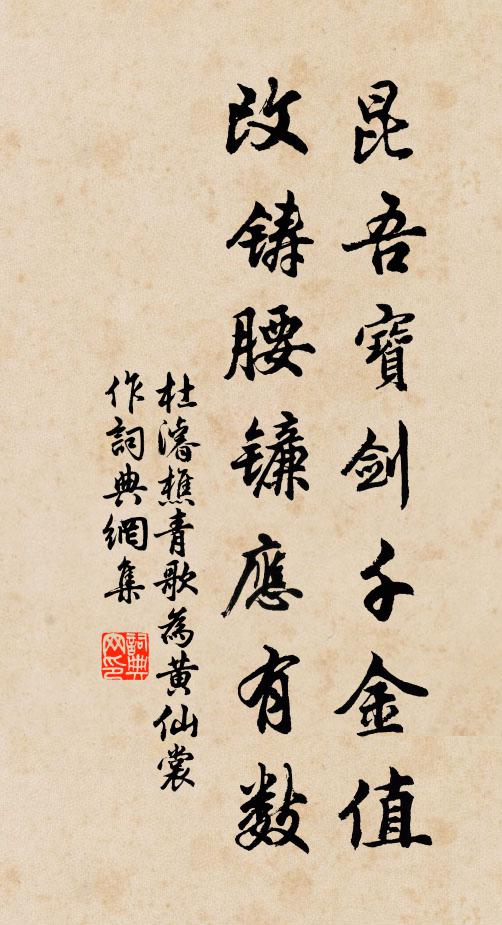 昆吾寶劍千金值
改鑄腰鐮應有數
杜濬樵青歌為黄仙裳
作詞典網集
詞典
网印